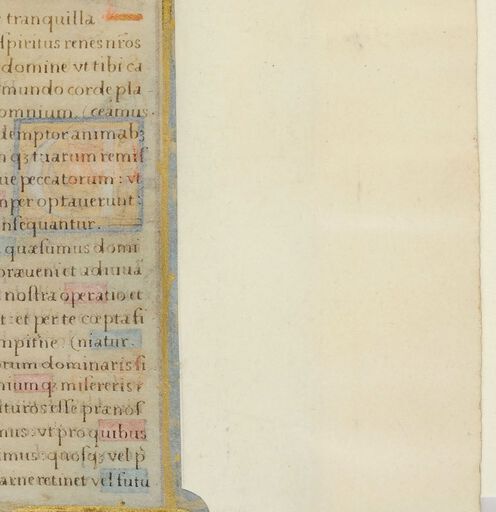 tranquilla
spiritus renes nr̄os
domine vt tibi ca
mundo corde pla
omnium. (ceamus.
demptor animabꝫ
qꝫ tuarum remiſ
peccatorum: vt
per optauerunt:
nſequantur.
quæſumus domi
præueni et adiuuā
noſtra operatio et
t: et per te cœpta fi
mpiťne. (niatur.
rum dominaris ſi
niumqꝫ miſereris
turos eſſe prænoſ
mus: vt pro quibus
imus: quoſqꝫ vel p̄
arne retinet vel futu